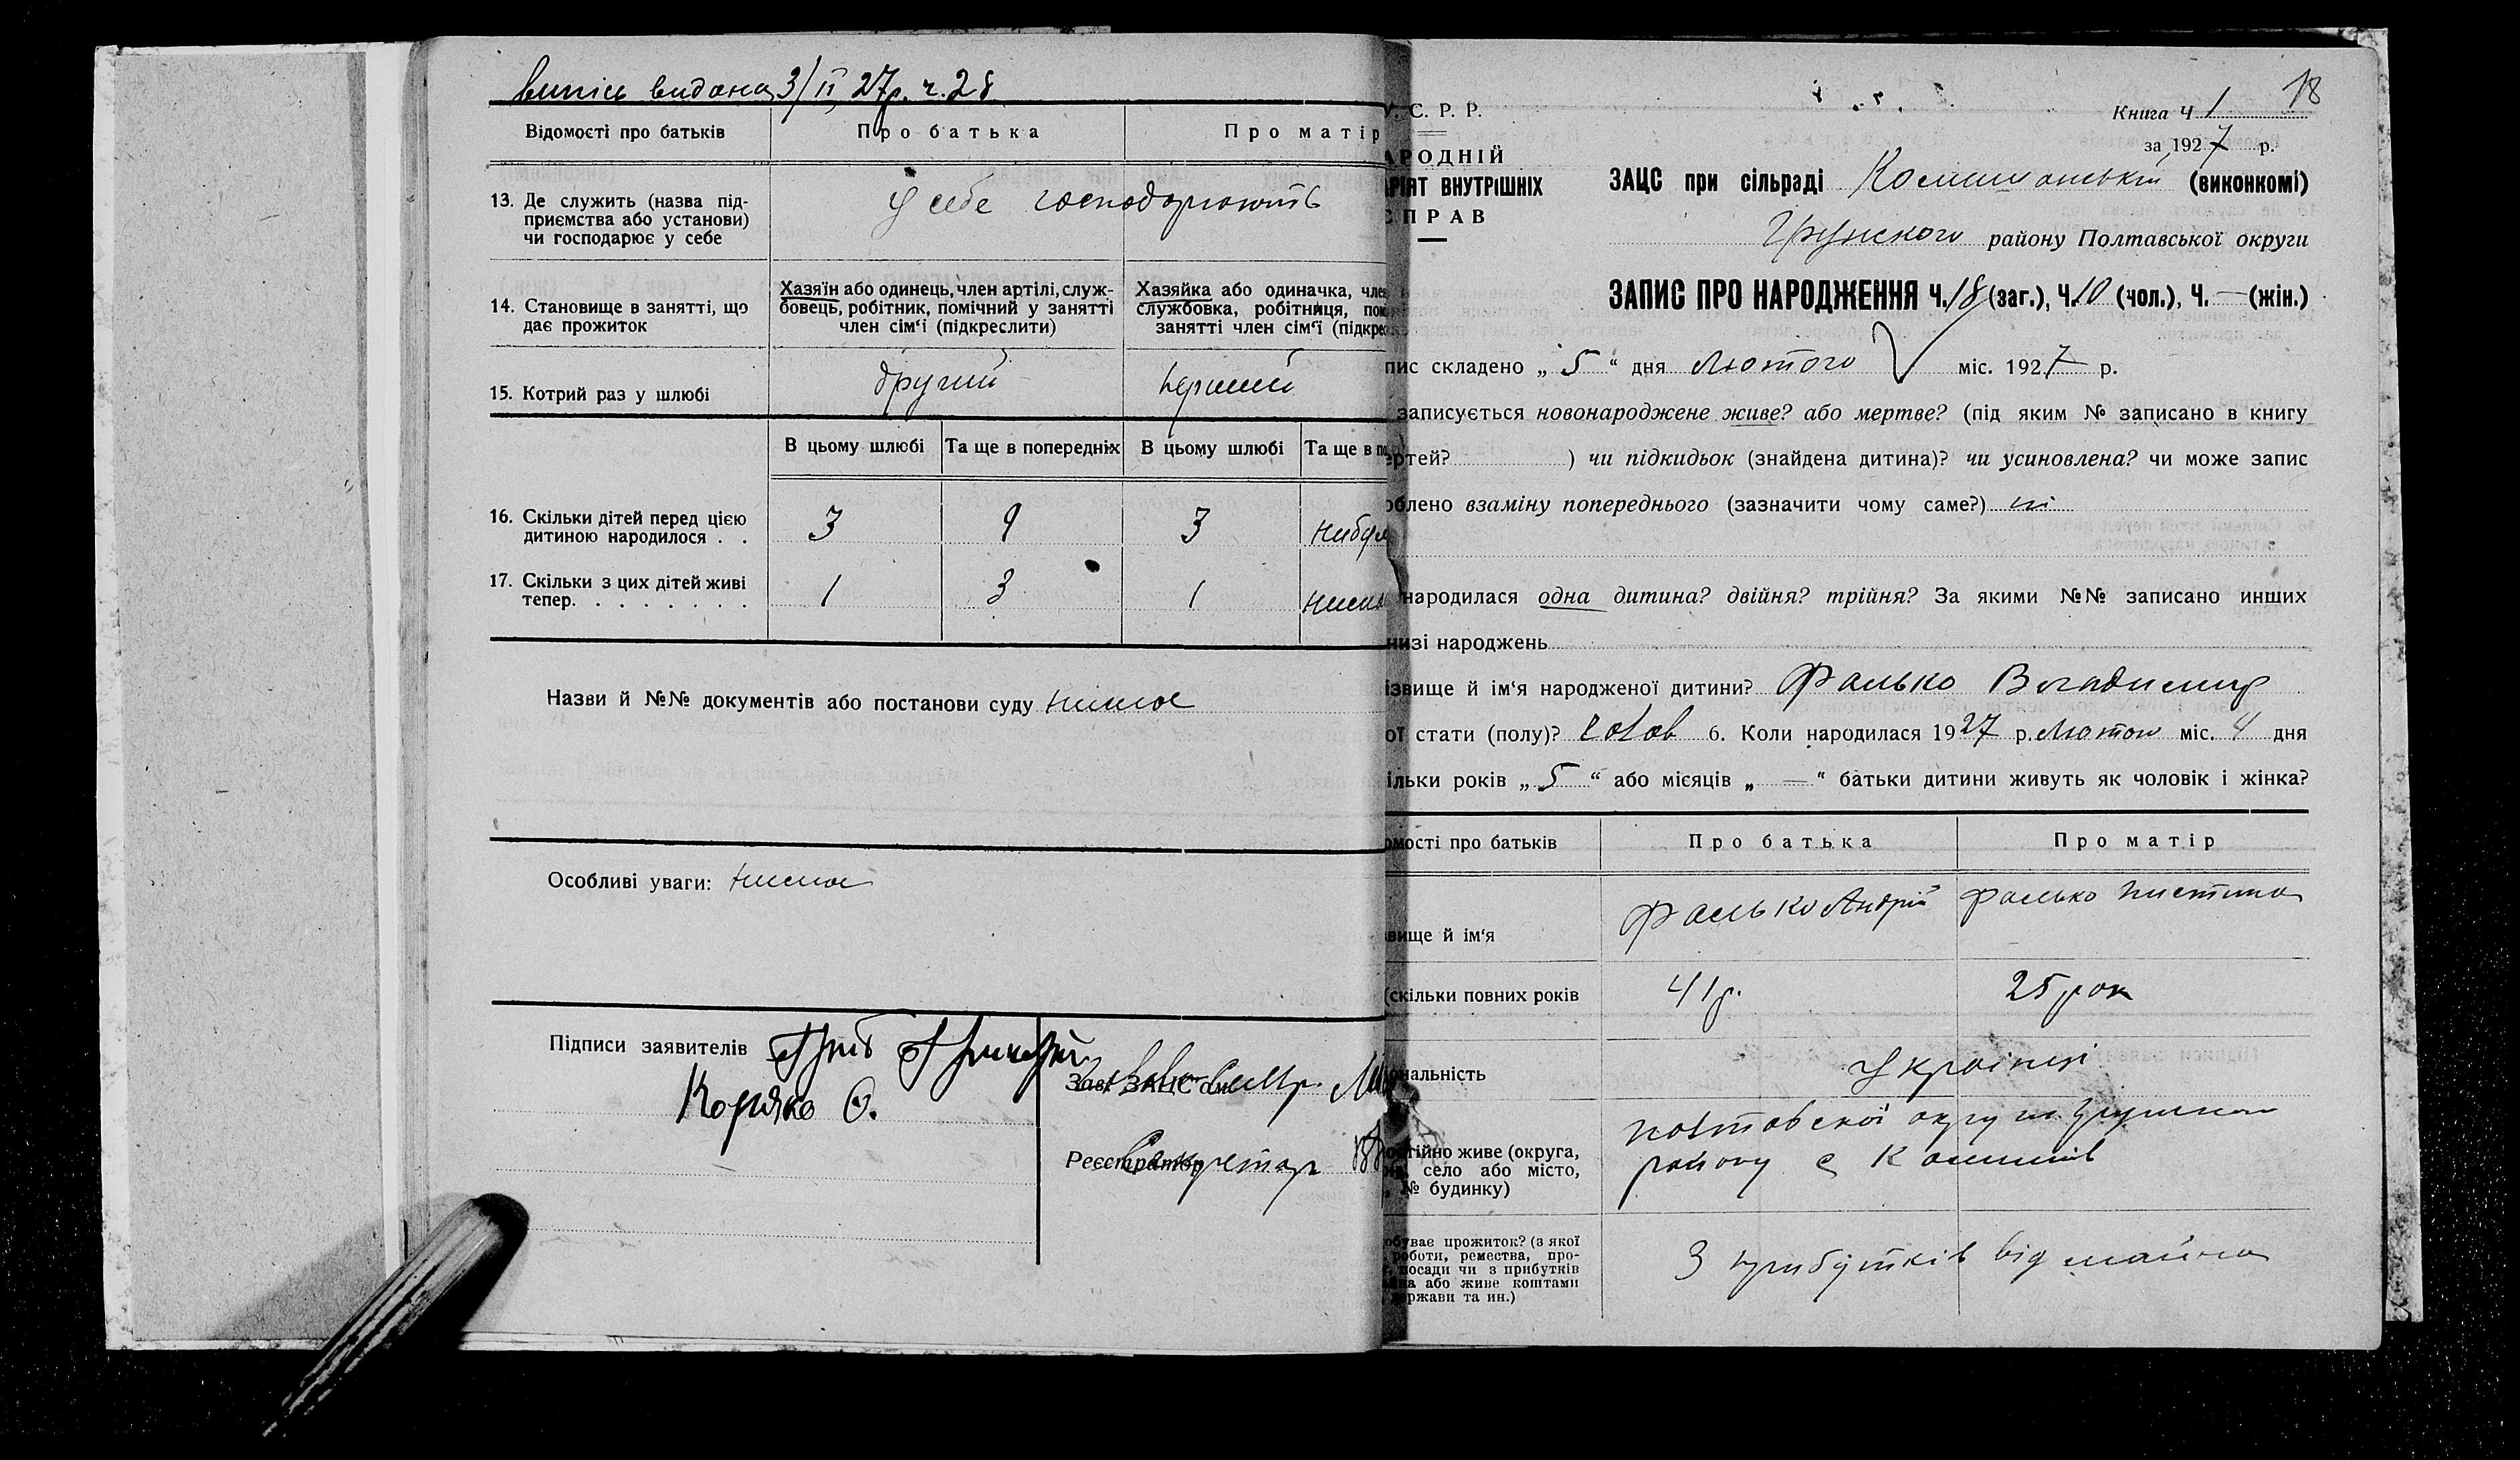 випись видана 3/II 27р. ч. 28
Відомості про батьків
Про батька
Про матір
13. Де служить (назва під-
приємства або установи)
чи господарює у себе
у себе господарюють
14. Становище в занятті, що
дає прожиток
Хазяїн або одинець, член артілі, служ-
бовець, робітник, помічний у занятті
член сім'ї (підкреслити)
Хазяйка або одиначка, чле
службовка, робітниця, пом
занятті член сім'ї (підкре
15. Котрий раз у шлюбі
другий
перший
В цьому шлюбі
Та ще в попередніх
В цьому шлюбі
Та ще в по
16. Скільки дітей перед цією
дитиною народилося . .
3
9
3
17. Скільки з цих дітей живі
тепер. . . . . . . .
1
3
1
Назви й №№ документів або постанови суду нима
Особливі уваги: нима
Підписи заявителів
Коряко О.
Зав. ЗАЦС'ом
Реєстратор
Секретар
У. С. Р. Р.
АРОДНІЙ
РІЯТ ВНУТРІШНІХ
СПРАВ
18
Книга Ч 1
за 1927 р.
ЗАЦС при сільраді (виконкомі)
Грунского району Полтавської округи
ЗАПИС ПРО НАРОДЖЕННЯ Ч. 18 (заг.), Ч. 10 (чол.), Ч. — (жін.)
пис складено „ 5 “ дня Лютого міс. 1927 р.
записується новонароджене живе? або мертве? (під яким № записано в книгу
ертей? ) чи підкидьок (знайдена дитина)? чи усиновлена? чи може запис
облено взаміну попереднього (зазначити чому саме?) ні
народилася одна дитина? двійня? трійня? За якими №№ записано инших
низі народжень
ізвище й ім'я народженої дитини? Фалько Владимир
ої стати (полу)? чолов 6. Коли народилася 1927 р. Лютого міс. 4 дня
ільки років „ 5 “ або місяців „ — “ батьки дитини живуть як чоловік і жінка?
омості про батьків
Про батька
Про матір
вище й ім'я
Фалько Андрій
Фалько Пистина
(скільки повних років
41 р.
25 рок
ональність
Українці
остійно живе (округа,
село або місто,
№ будинку)
Полтавскої округи Грунском
району с Комиші
обуває прожиток? (з якої
роботи, ремества, про-
посади чи з прибутків
на або живе коштами
ержави та ин.)
З прибутків від майна